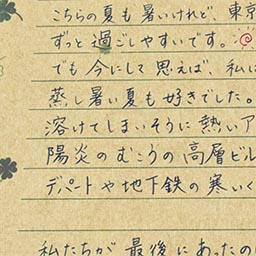 こちらの夏も暑いけれど、東京
ずっと過ごしやすいです。
でも今にして思えば、私に
蒸し暑い夏も好きでした。
溶けてしまいそうに熱いア
陽炎のむこうの高層ビル
デパートや地下鉄の寒いく
私たちが最後にあったの